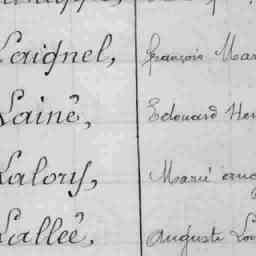 Laignel, François Mar
Lainê, Edouard Hen
Lalory, Marie
Lalleê, Auguste Lou